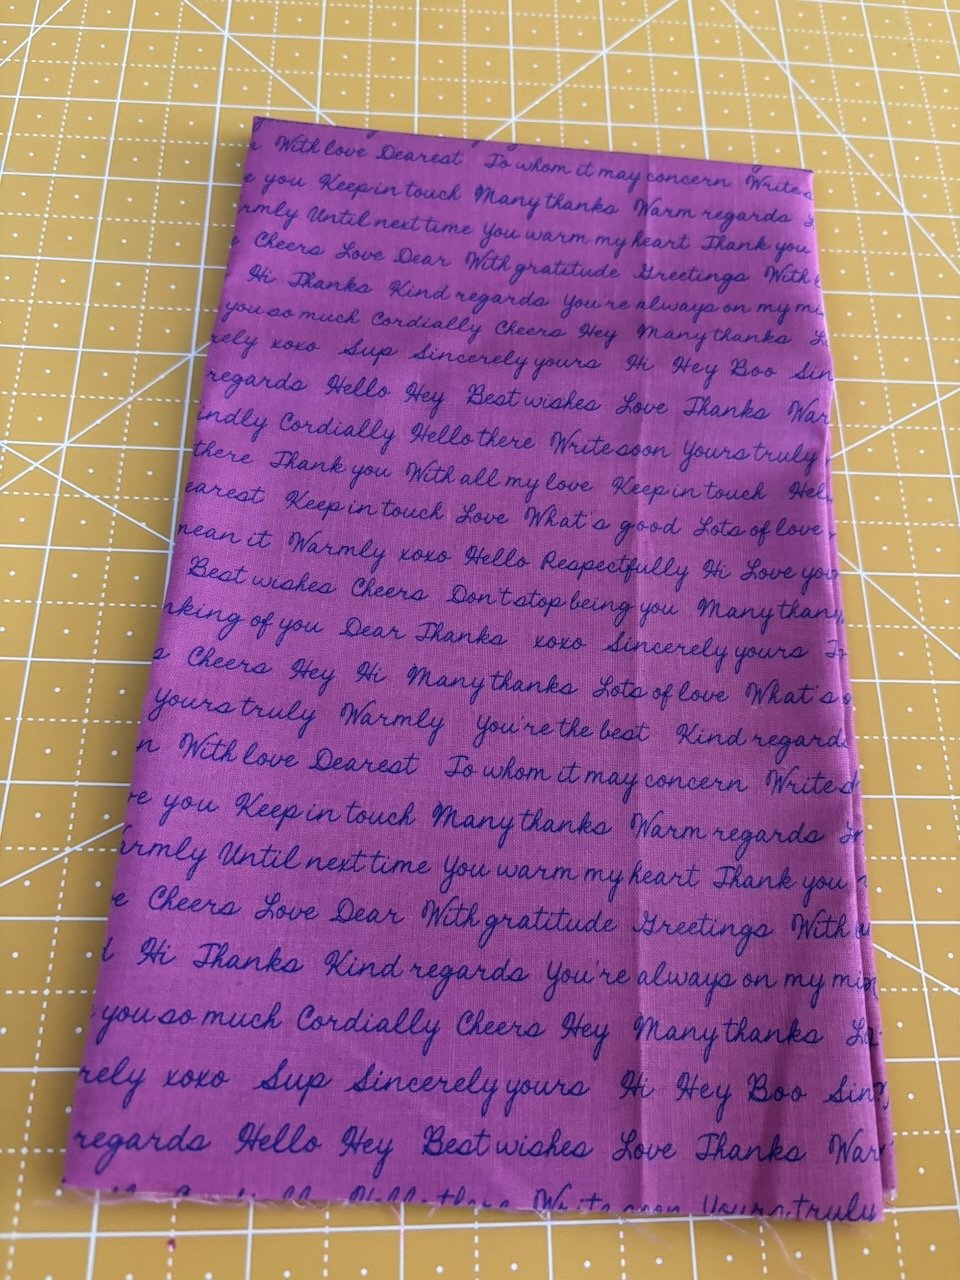 With love Dearest To whom it may concern Write s
e you Keep in touch Many thanks Warm regards
rmly Until next time You warm my heart Thank you
e Cheers Love Dear With gratitude Greetings With
Hi Thanks Kind regards You're always on my mi
you so much Cordially Cheers Hey Many thanks L
rely xoxo Sup Sincerely yours Hi Hey Boo Sin
regards Hello Hey Best wishes Love Thanks War
indly Cordially Hello there Write soon Yours truly
there Thank you With all my love Keep in touch Hel
earest Keep in touch Love What's good Lots of love
mean it Warmly xoxo Hello Respectfully Hi Love you
Best wishes Cheers Don't stop being you Many than
nking of you Dear Thanks xoxo Sincerely yours
s Cheers Hey Hi Many thanks Lots of love What's
yours truly Warmly You're the best Kind regard
n With love Dearest To whom it may concern Write s
e you Keep in touch Many thanks Warm regards
armly Until next time You warm my heart Thank you
e Cheers Love Dear With gratitude Greetings With
Hi Thanks Kind regards You're always on my min
you so much Cordially Cheers Hey Many thanks Lo
rely xoxo Sup Sincerely yours Hi Hey Boo Sin
regards Hello Hey Best wishes Love Thanks War
Hello there Write soon Yours truly